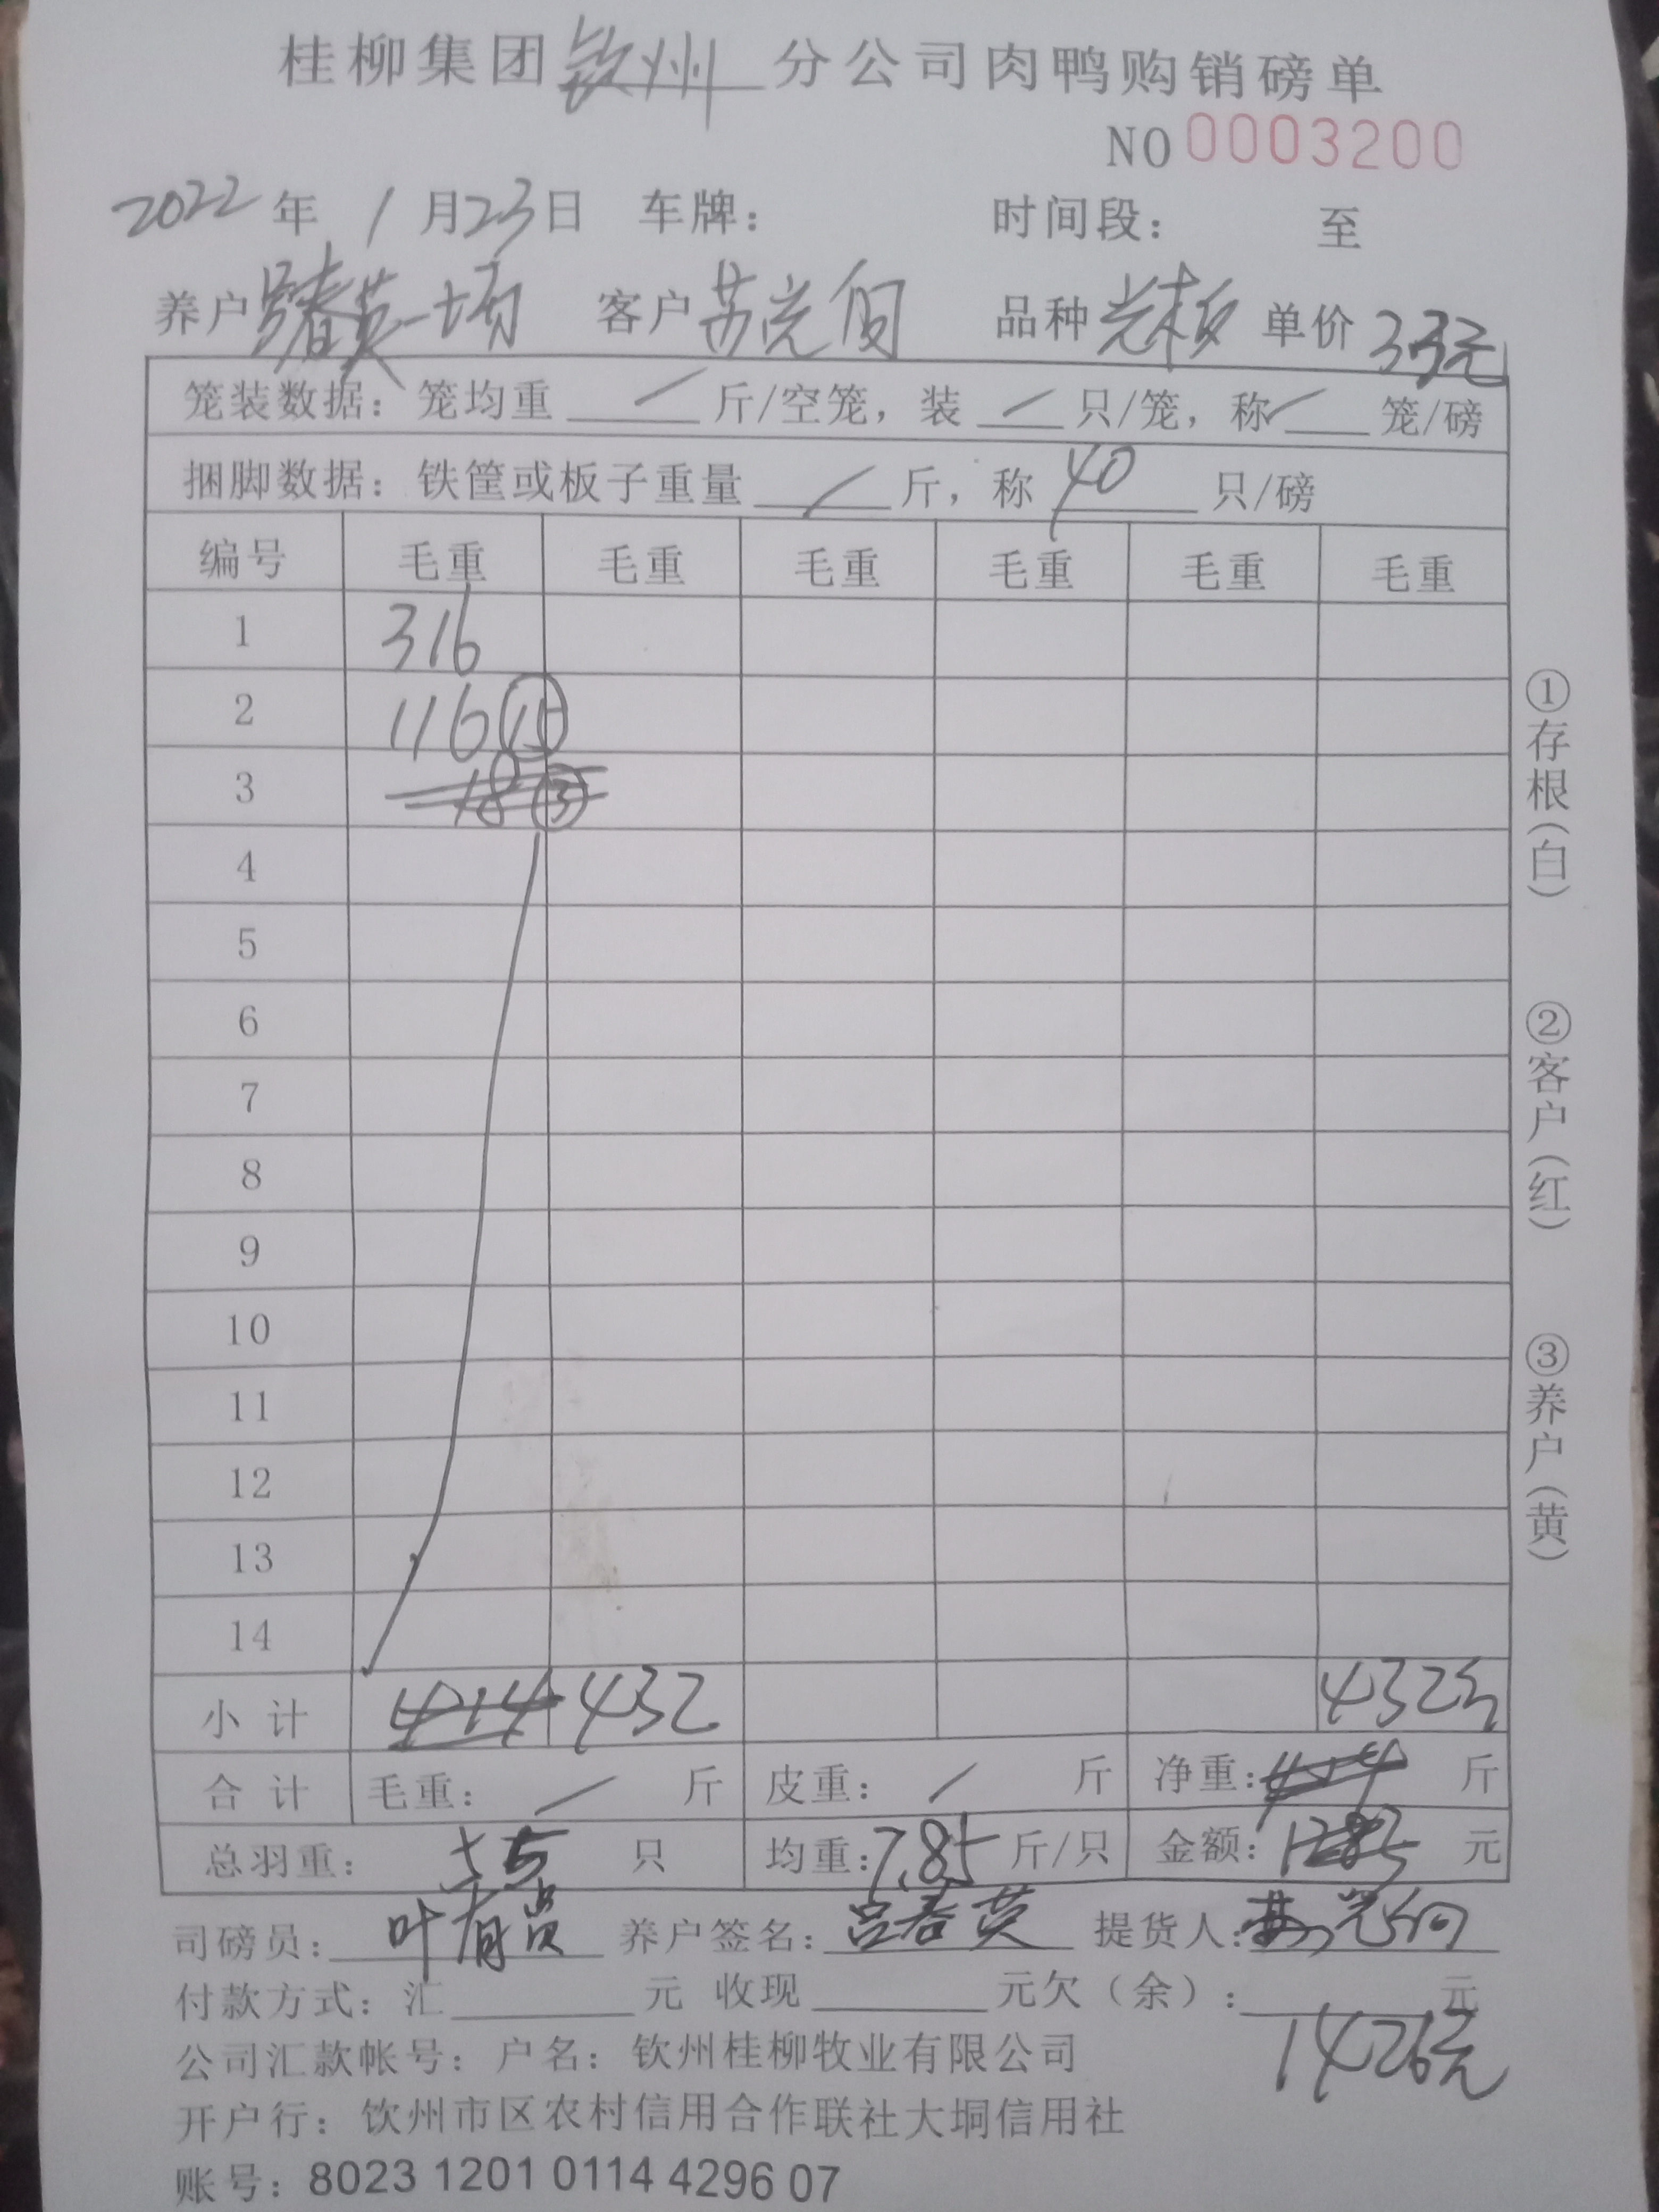 桂柳集团钦州分公司肉鸭购销磅单
NO 0003200
2022年 1月23日 车牌： 时间段： 至
养户 吕春英一场 客户 苏光向 品种 光板 单价 3.3元
笼装数据：笼均重 / 斤/空笼，装 / 只/笼，称 / 笼/磅
捆脚数据：铁筐或板子重量 / 斤，称 40 只/磅
编号 毛重 毛重 毛重 毛重 毛重 毛重
1 316
2 116 ⑮
3 18 ③
4
5
6
7
8
9
10
11
12
13
14
小计 414 432 432斤
合计 毛重： / 斤 皮重： / 斤 净重：414 斤
总羽重： 55 只 均重：7.85 斤/只 金额： 元
司磅员：叶有贵 养户签名：吕春英 提货人：苏光向
付款方式：汇 元 收现 元欠（余）： 元
1426元
公司汇款帐号：户名：钦州桂柳牧业有限公司
开户行：钦州市区农村信用合作联社大垌信用社
账号：8023 1201 0114 4296 07
①存根（白）
②客户（红）
③养户（黄）